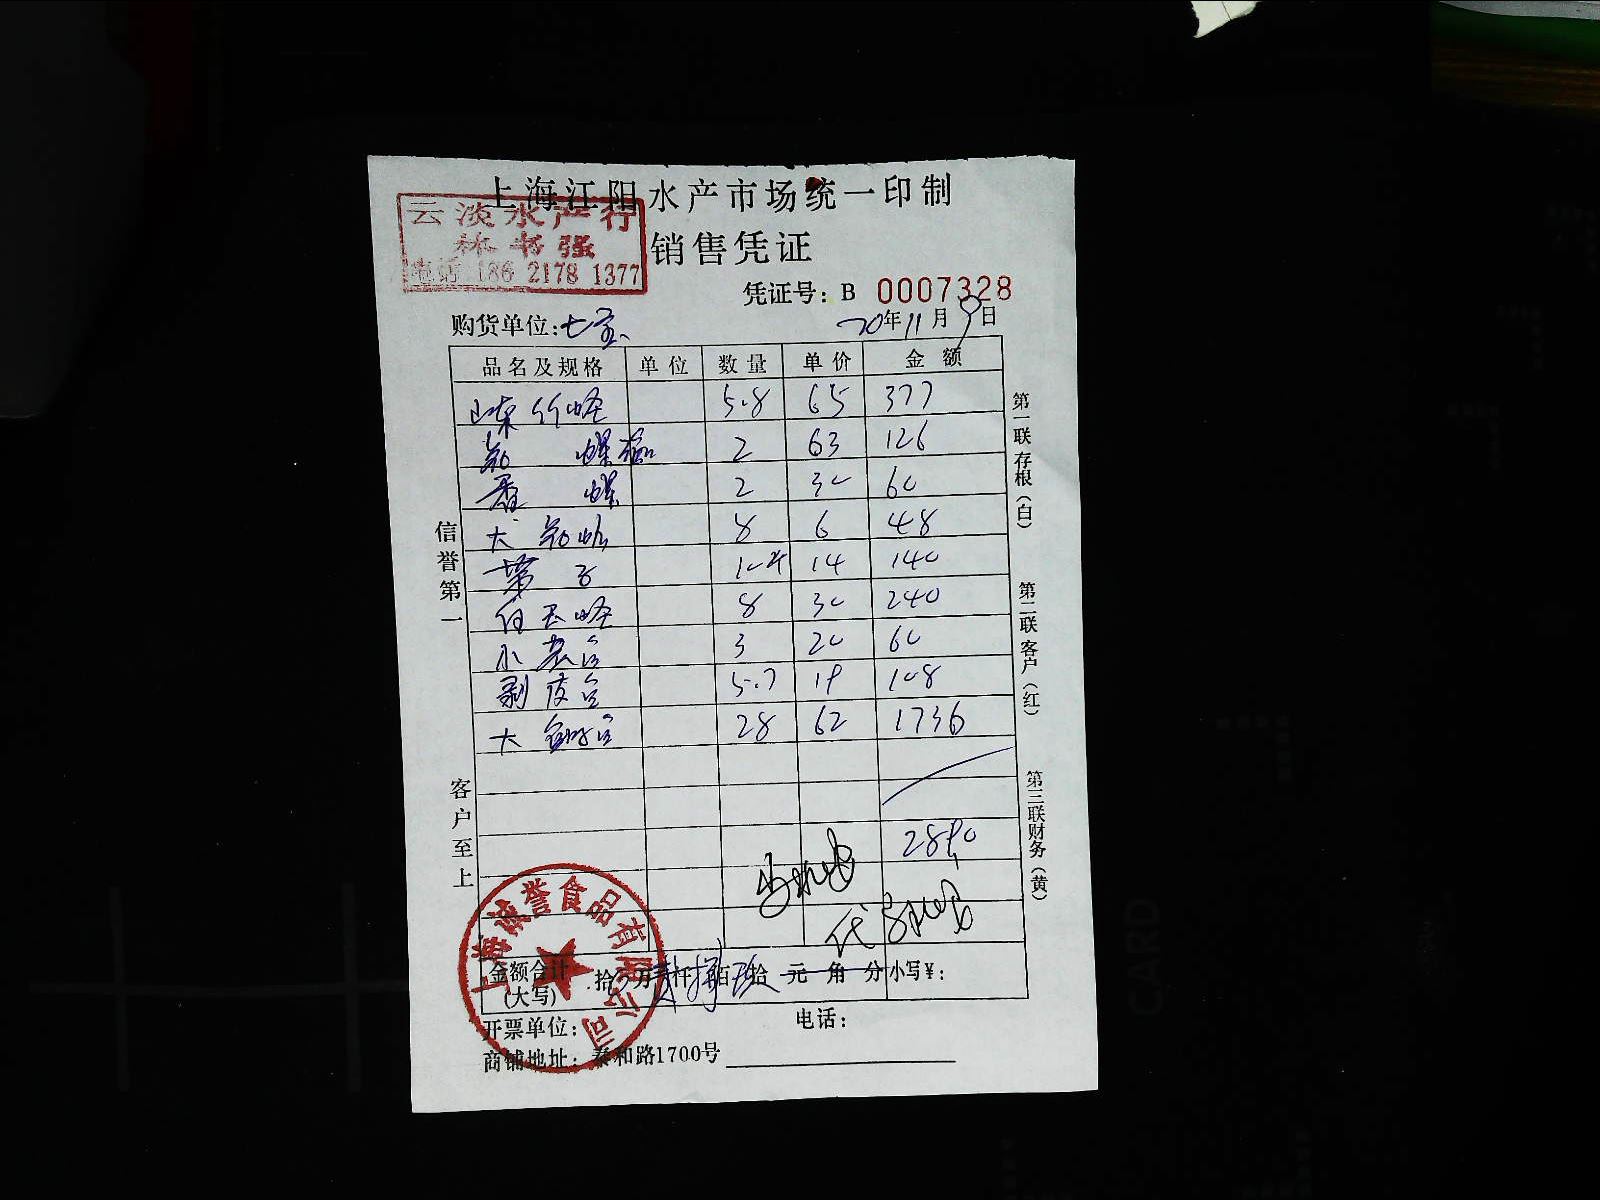 上海江阳水产市场统一印制
云淡水产行
林书强
电话 186 2178 1377
销售凭证
凭证号: B 0007328
购货单位: 七宝
20年11月9日
品名及规格 单位 数量 单价 金额
山东竹蛏 5.8 65 377
2 63 126
香螺 2 30 60
大 8 6 48
14 140
白玉蛏 8 30 240
小 3 20 60
剥皮鱼 5.7 19 108
大 28 62 1736
2890
金额合计(大写) 拾 万 仟 佰 拾 元 角 分 小写¥:
开票单位:
电话:
商铺地址: 泰和路1700号
上海诚誉食品有限公司
信誉第一
客户至上
第一联存根(白)
第二联客户(红)
第三联财务(黄)